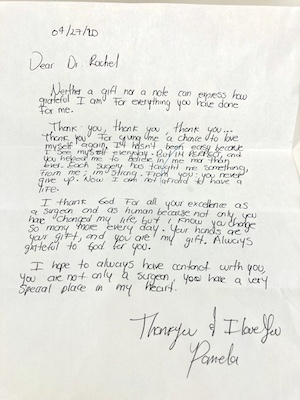 04/27/20
Dear Dr. Rachel
Neither a gift nor a note can express how
grateful I am for everything you have done
for me.
Thank you, thank you, thank you...
Thank you for giving me a chance to love
myself again. It hasn't been easy because
I see myself everyday. But in person, and
you helped me to believe in me more than
ever. Each surgery has taught me something,
from me; im strong. From you; you never
give up. Now I am not afraid to have a
life.
I thank God for all your excellence as
a surgeon and as human because not only you
have changed my life, but I know you change
so many more every day. Your hands are
your gift, and you are my gift. Always
grateful to God for you.
I hope to always have contanct with you,
you are not only a surgeon, you have a very
special place in my heart.
Thank you & I love you
Pamela